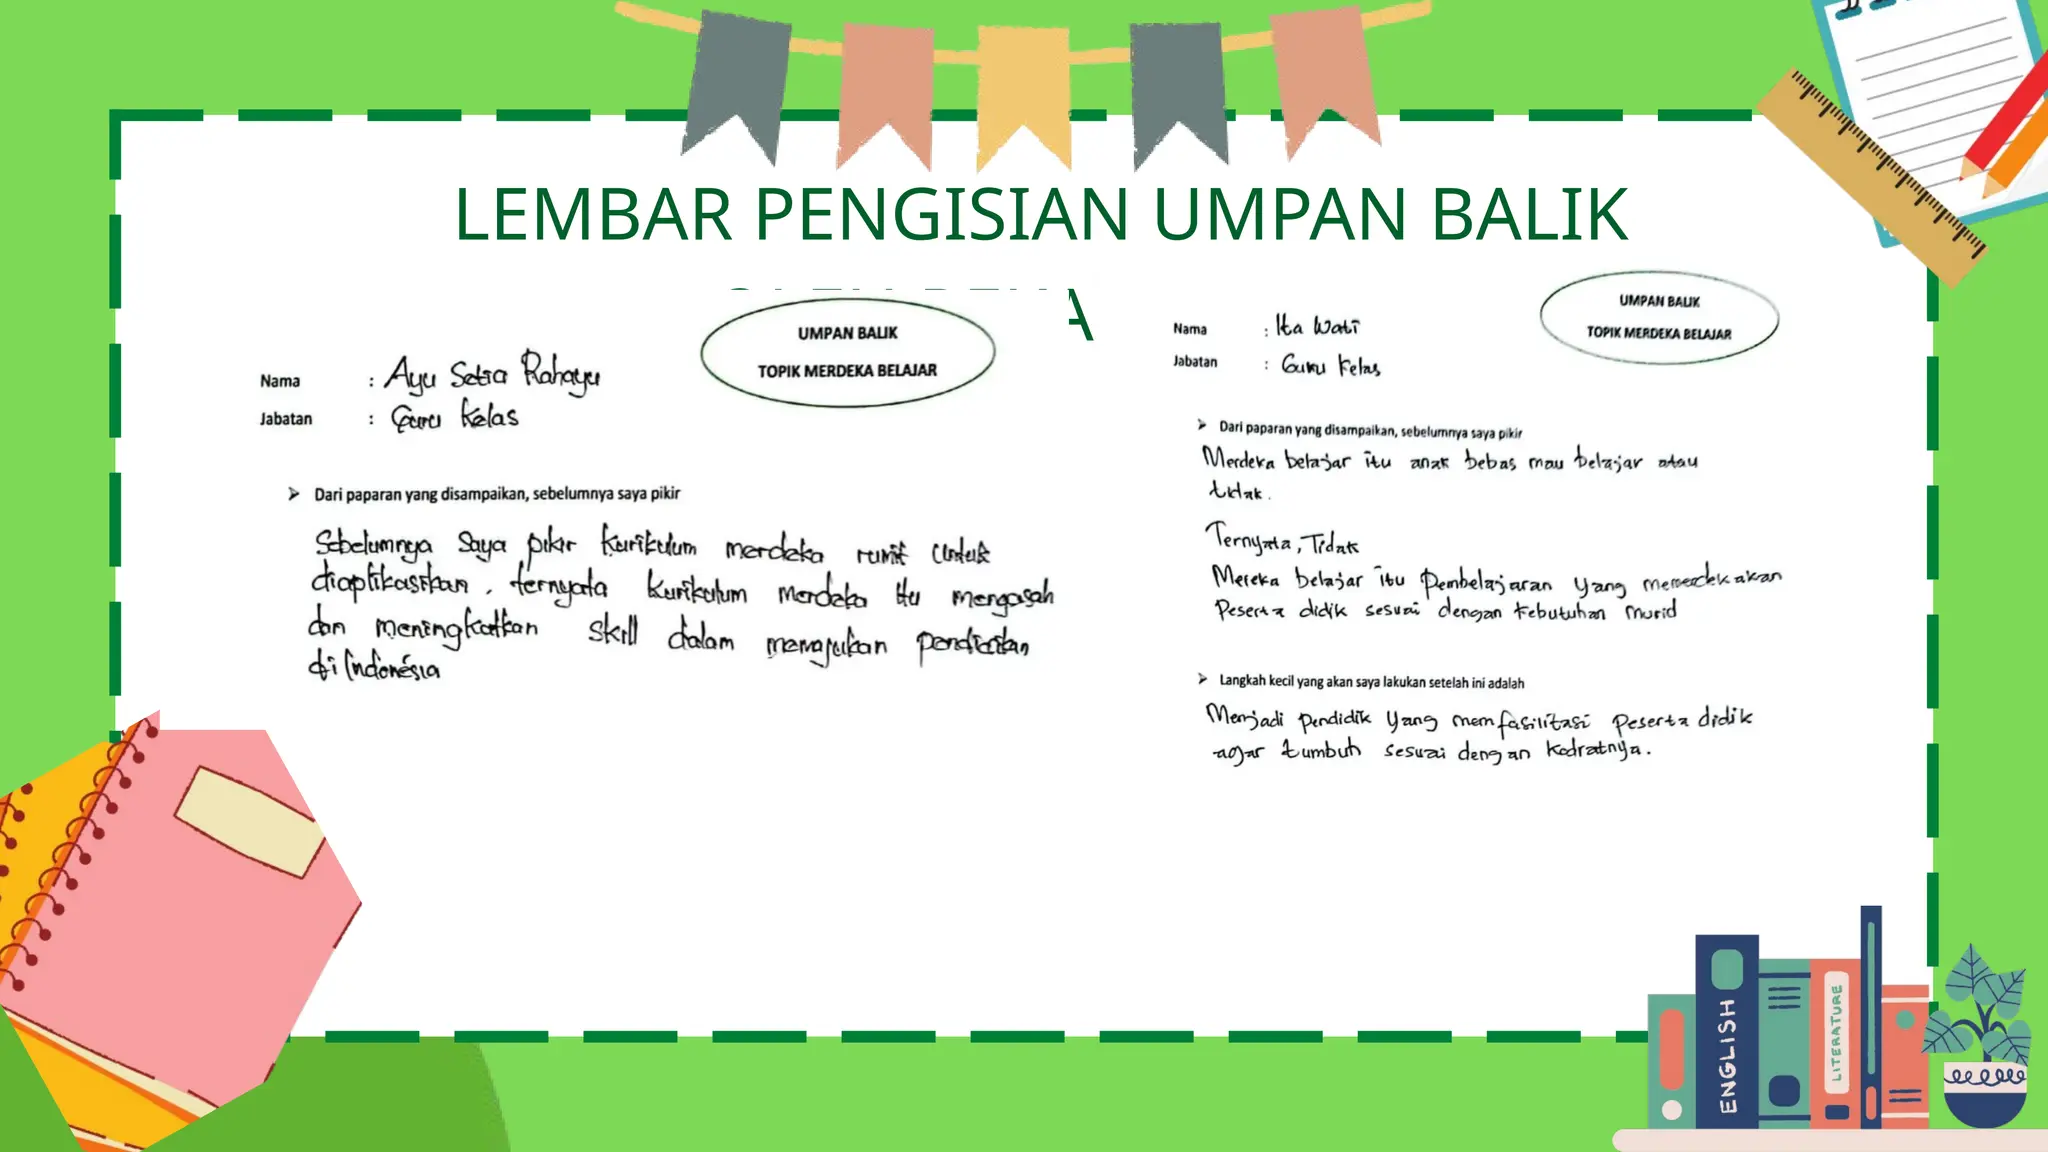 LEMBAR PENGISIAN UMPAN BALIK
UMPAN BALIK
TOPIK MERDEKA BELAJAR
Nama : Ayu Setia Rahayu
Jabatan : Guru Kelas
➢ Dari paparan yang disampaikan, sebelumnya saya pikir
Sebelumnya saya pikir kurikulum merdeka rumit untuk
diaplikasikan, ternyata kurikulum merdeka itu mengasah
dan meningkatkan skill dalam memajukan pendidikan
di Indonesia
UMPAN BALIK
TOPIK MERDEKA BELAJAR
Nama : Ita Wati
Jabatan : Guru Kelas
➢ Dari paparan yang disampaikan, sebelumnya saya pikir
Merdeka belajar itu anak bebas mau belajar atau
tidak.
Ternyata, Tidak
Mereka belajar itu pembelajaran yang memerdekakan
peserta didik sesuai dengan kebutuhan murid
➢ Langkah kecil yang akan saya lakukan setelah ini adalah
Menjadi pendidik yang memfasilitasi peserta didik
agar tumbuh sesuai dengan kodratnya.
ENGLISH
LITERATURE